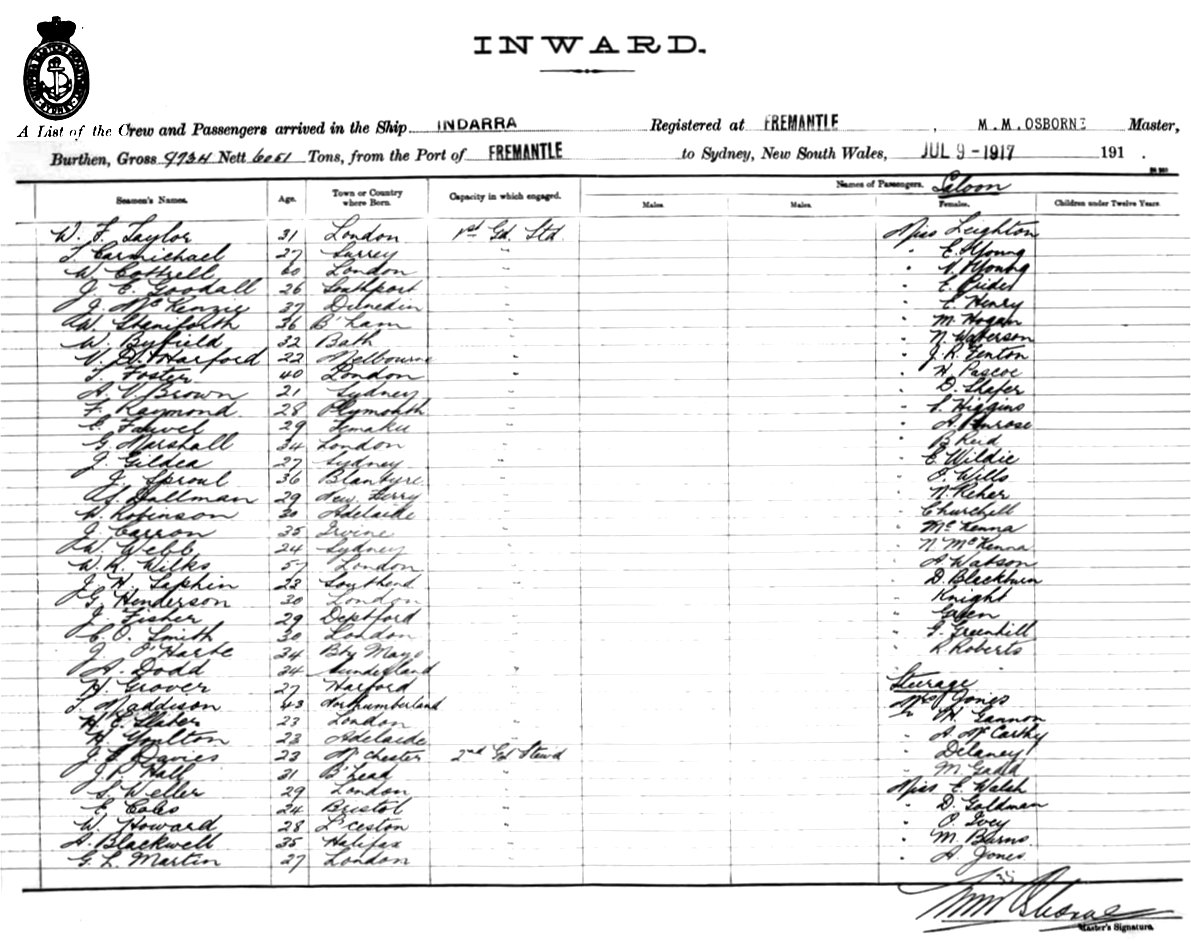 INWARD.
A List of the Crew and Passengers arrived in the Ship INDARRA Registered at FREMANTLE , M. M. OSBORNE Master,
Burthen, Gross 9734 Nett 6051 Tons, from the Port of FREMANTLE to Sydney, New South Wales, JUL 9 - 1917 191 .
Names of Passengers. Saloon
Seamen's Names. Age. Town or Country where Born. Capacity in which engaged. Males. Males. Females. Children under Twelve Years
W. F. Taylor 31 London 1st Gd. Std. Miss Leighton
T. Carmichael 27 Surrey " " E. Young
W. Cottrell 60 London " " V. Young
J. E. Goodall 26 Southport " " E. Rider
J. McKenzie 37 Dunedin " " E. Henry
W. Staniforth 36 B'ham " " M. Hogan
W. Byfield 32 Bath " " N. Waterson
V. H. Harford 22 Melbourne " " J. R. Fenton
T. Foster 40 London " " H. Pascoe
A. V. Brown 21 Sydney " " D. Shafer
F. Raymond 28 Plymouth " " L. Higgins
E. 29 Timaru " " A. Penrose
G. Marshall 34 London " " B. Reid
J. Gildea 27 Sydney " " E. Wildie
J. Sproul 36 Blantyre " " O. Wills
S. Dallman 29 New Ferry " " N. Reher
H. Robinson 30 Adelaide " " Churchill
J. Carron 35 Irvine " " McKenna
W. Webb 24 Sydney " " N. McKenna
W. R. Wilks 57 London " " A. Watson
J. H. Saphin 23 Southend " " D. Blackburn
G. Henderson 30 London " " Knight
J. Fisher 29 Deptford " "
C. O. Smith 30 London " " G. Greenhill
J. O'Harte 34 Bty Mayo " " R. Roberts
A. Dodd 34 Sunderland "
H. Grover 27 Harford " Steerage
T. Maddison 43 Northumberland " Mrs Jones
H. E. Slater 23 London " " H. Gannon
H. Moulton 23 Adelaide " " A. McCarthy
J. E. Davies 23 M'chester 2nd Gd Stewd " Delaney
J. P. Hall 31 B'head " " M. Gadd
S. Weller 29 London " Miss E. Walsh
E. Coles 24 Bristol " " D. Goldman
W. Howard 28 L'ceston " " O. Ivey
A. Blackwell 35 Halifax " " M. Burns
G. L. Martin 27 London " " A. Jones
35
MM Osborne
Master's Signature.